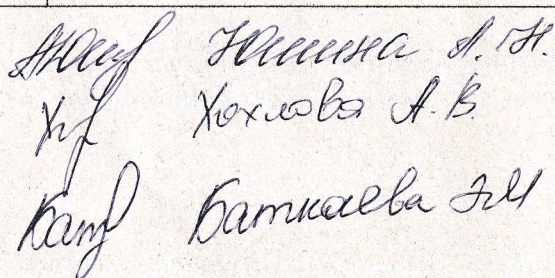 Юшина А. Н.
Хохлова А. В.
Баткаева Э М